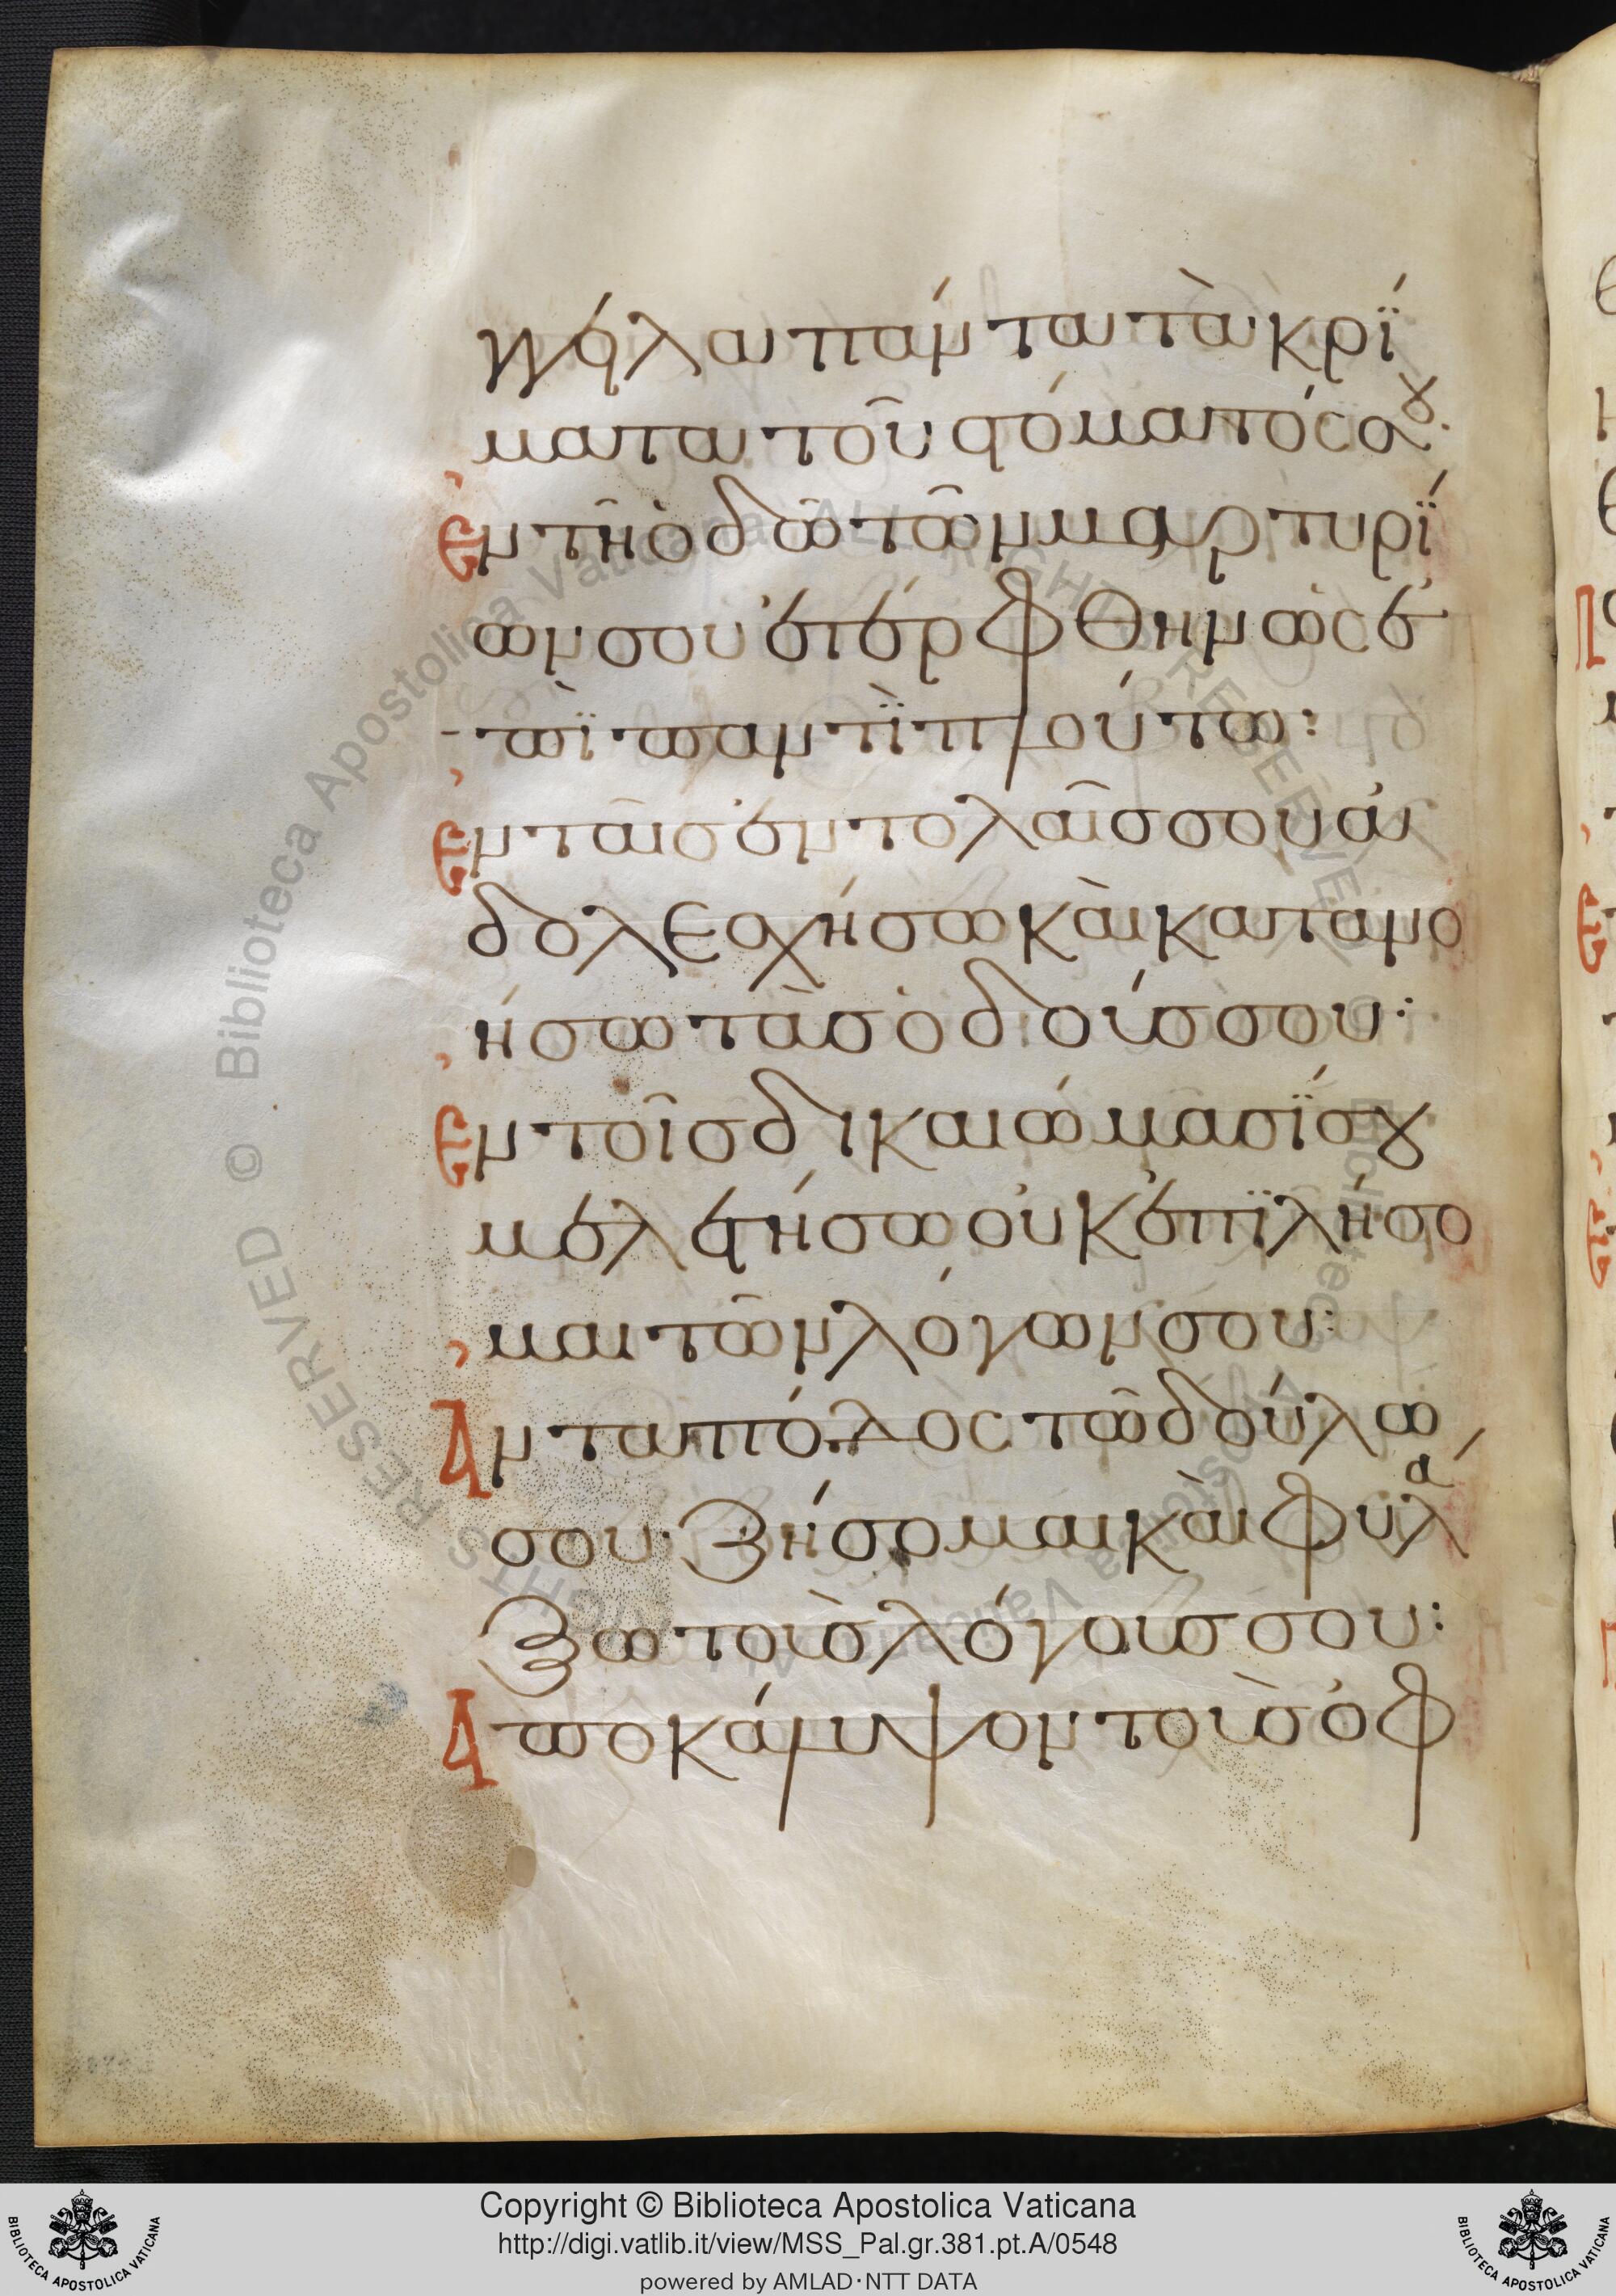 γγειλα πάντα τὰ κρί
ματα τοῦ στόματός σου·
Ἐν τῇ ὁδῷ τῶν μαρτυρί
ων σου ἐτέρφθην ὡς ἐ
πὶ παντὶ πλούτω:
Ἐν ταῖς ἐντολαῖς σου ἀ
δολεσχήσω καὶ κατανο
ήσω τὰς ὁδούς σου:
Ἐν τοῖς δικαιώμασί σου
μελετήσω οὐκ ἐπιλήσο
μαι τῶν λόγων σου:
Ἀνταπόδος τῶ δούλω
σου· ζήσομαι καὶ φυλά
ξω τοὺς λόγους σου:
Ἀποκάλυψον τοὺς ὀφ
© Biblioteca Apostolica Vaticana ALL RIGHTS RESERVED
Copyright © Biblioteca Apostolica Vaticana
http://digi.vatlib.it/view/MSS_Pal.gr.381.pt.A/0548
powered by AMLAD·NTT DATA
BIBLIOTECA APOSTOLICA VATICANA
BIBLIOTECA APOSTOLICA VATICANA